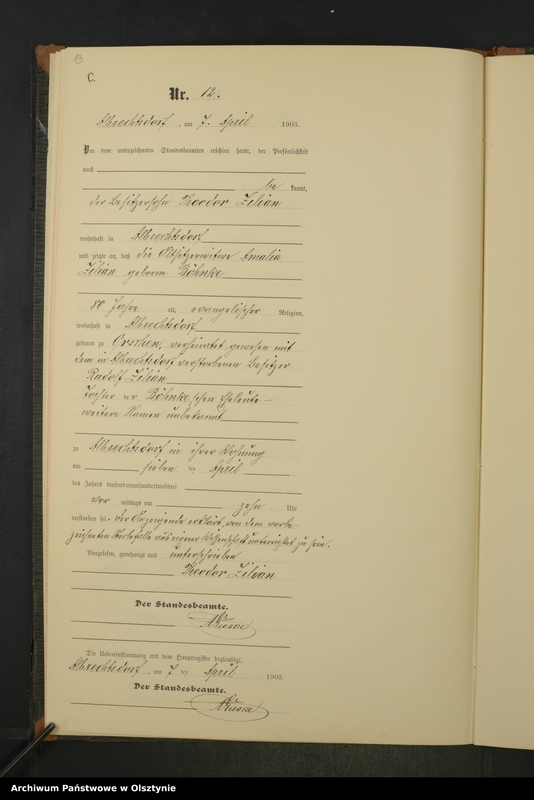 13
C.
Nr. 12.
Albrechtsdorf, am 7. April 1903.
Vor dem unterzeichneten Standesbeamten erschien heute, der Persönlichkeit
nach
be kannt,
der Besitzersohn Theodor Zilian
wohnhaft in Albrechtsdorf
und zeigte an, daß die Altsitzerwitwe Amalia
Zilian geborene Böhnke
80 Jahre alt, evangelischer Religion,
wohnhaft in Albrechtsdorf
geboren zu Orschen, verheiratet gewesen mit
dem in Albrechtsdorf verstorbenen Besitzer
Rudolf Zilian
Tochter der Böhnke'schen Eheleute –
weitere Namen unbekannt
zu Albrechtsdorf in ihrer Wohnung
am sieben ten April
des Jahres tausendneunhundertunddrei
vor mittags um zehn Uhr
verstorben sei. Der Anzeigende erklärt, von dem vorbe-
zeichneten Sterbefalle aus eigener Wissenschaft unterrichtet zu sein.
Vorgelesen, genehmigt und unterschrieben
Theodor Zilian
Der Standesbeamte.
Die Uebereinstimmung mit dem Hauptregister beglaubigt.
Albrechtsdorf, am 7 ten April 1903.
Der Standesbeamte.
Archiwum Państwowe w Olsztynie